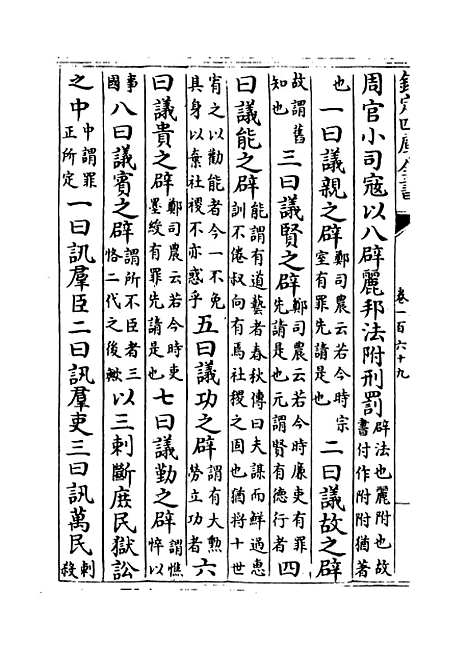 欽定四庫全書
卷一百六十九
周官小司寇以八辟麗邦法附刑罰辟法也麗附也故書付作附附猶著
也一曰議親之辟鄭司農云若今時宗室有罪先請是也二曰議故之辟
故謂舊知也三曰議賢之辟鄭司農云若今時廉吏有罪先請是也元謂賢有德行者四
曰議能之辟能謂有道藝者春秋傳曰夫謀而鮮過惠訓不倦叔向有焉社稷之固也猶將十世
宥之以勸能者今一不免其身以棄社稷不亦惑乎五曰議功之辟謂有大勲勞立功者六
曰議貴之辟鄭司農云若今時吏墨綬有罪先請是也七曰議勤之辟謂憔悴以
事國八曰議賓之辟謂所不臣者三恪二代之後歟以三刺斷庶民獄訟
之中中謂罪正所定一曰訊羣臣二曰訊羣吏三曰訊萬民刺殺